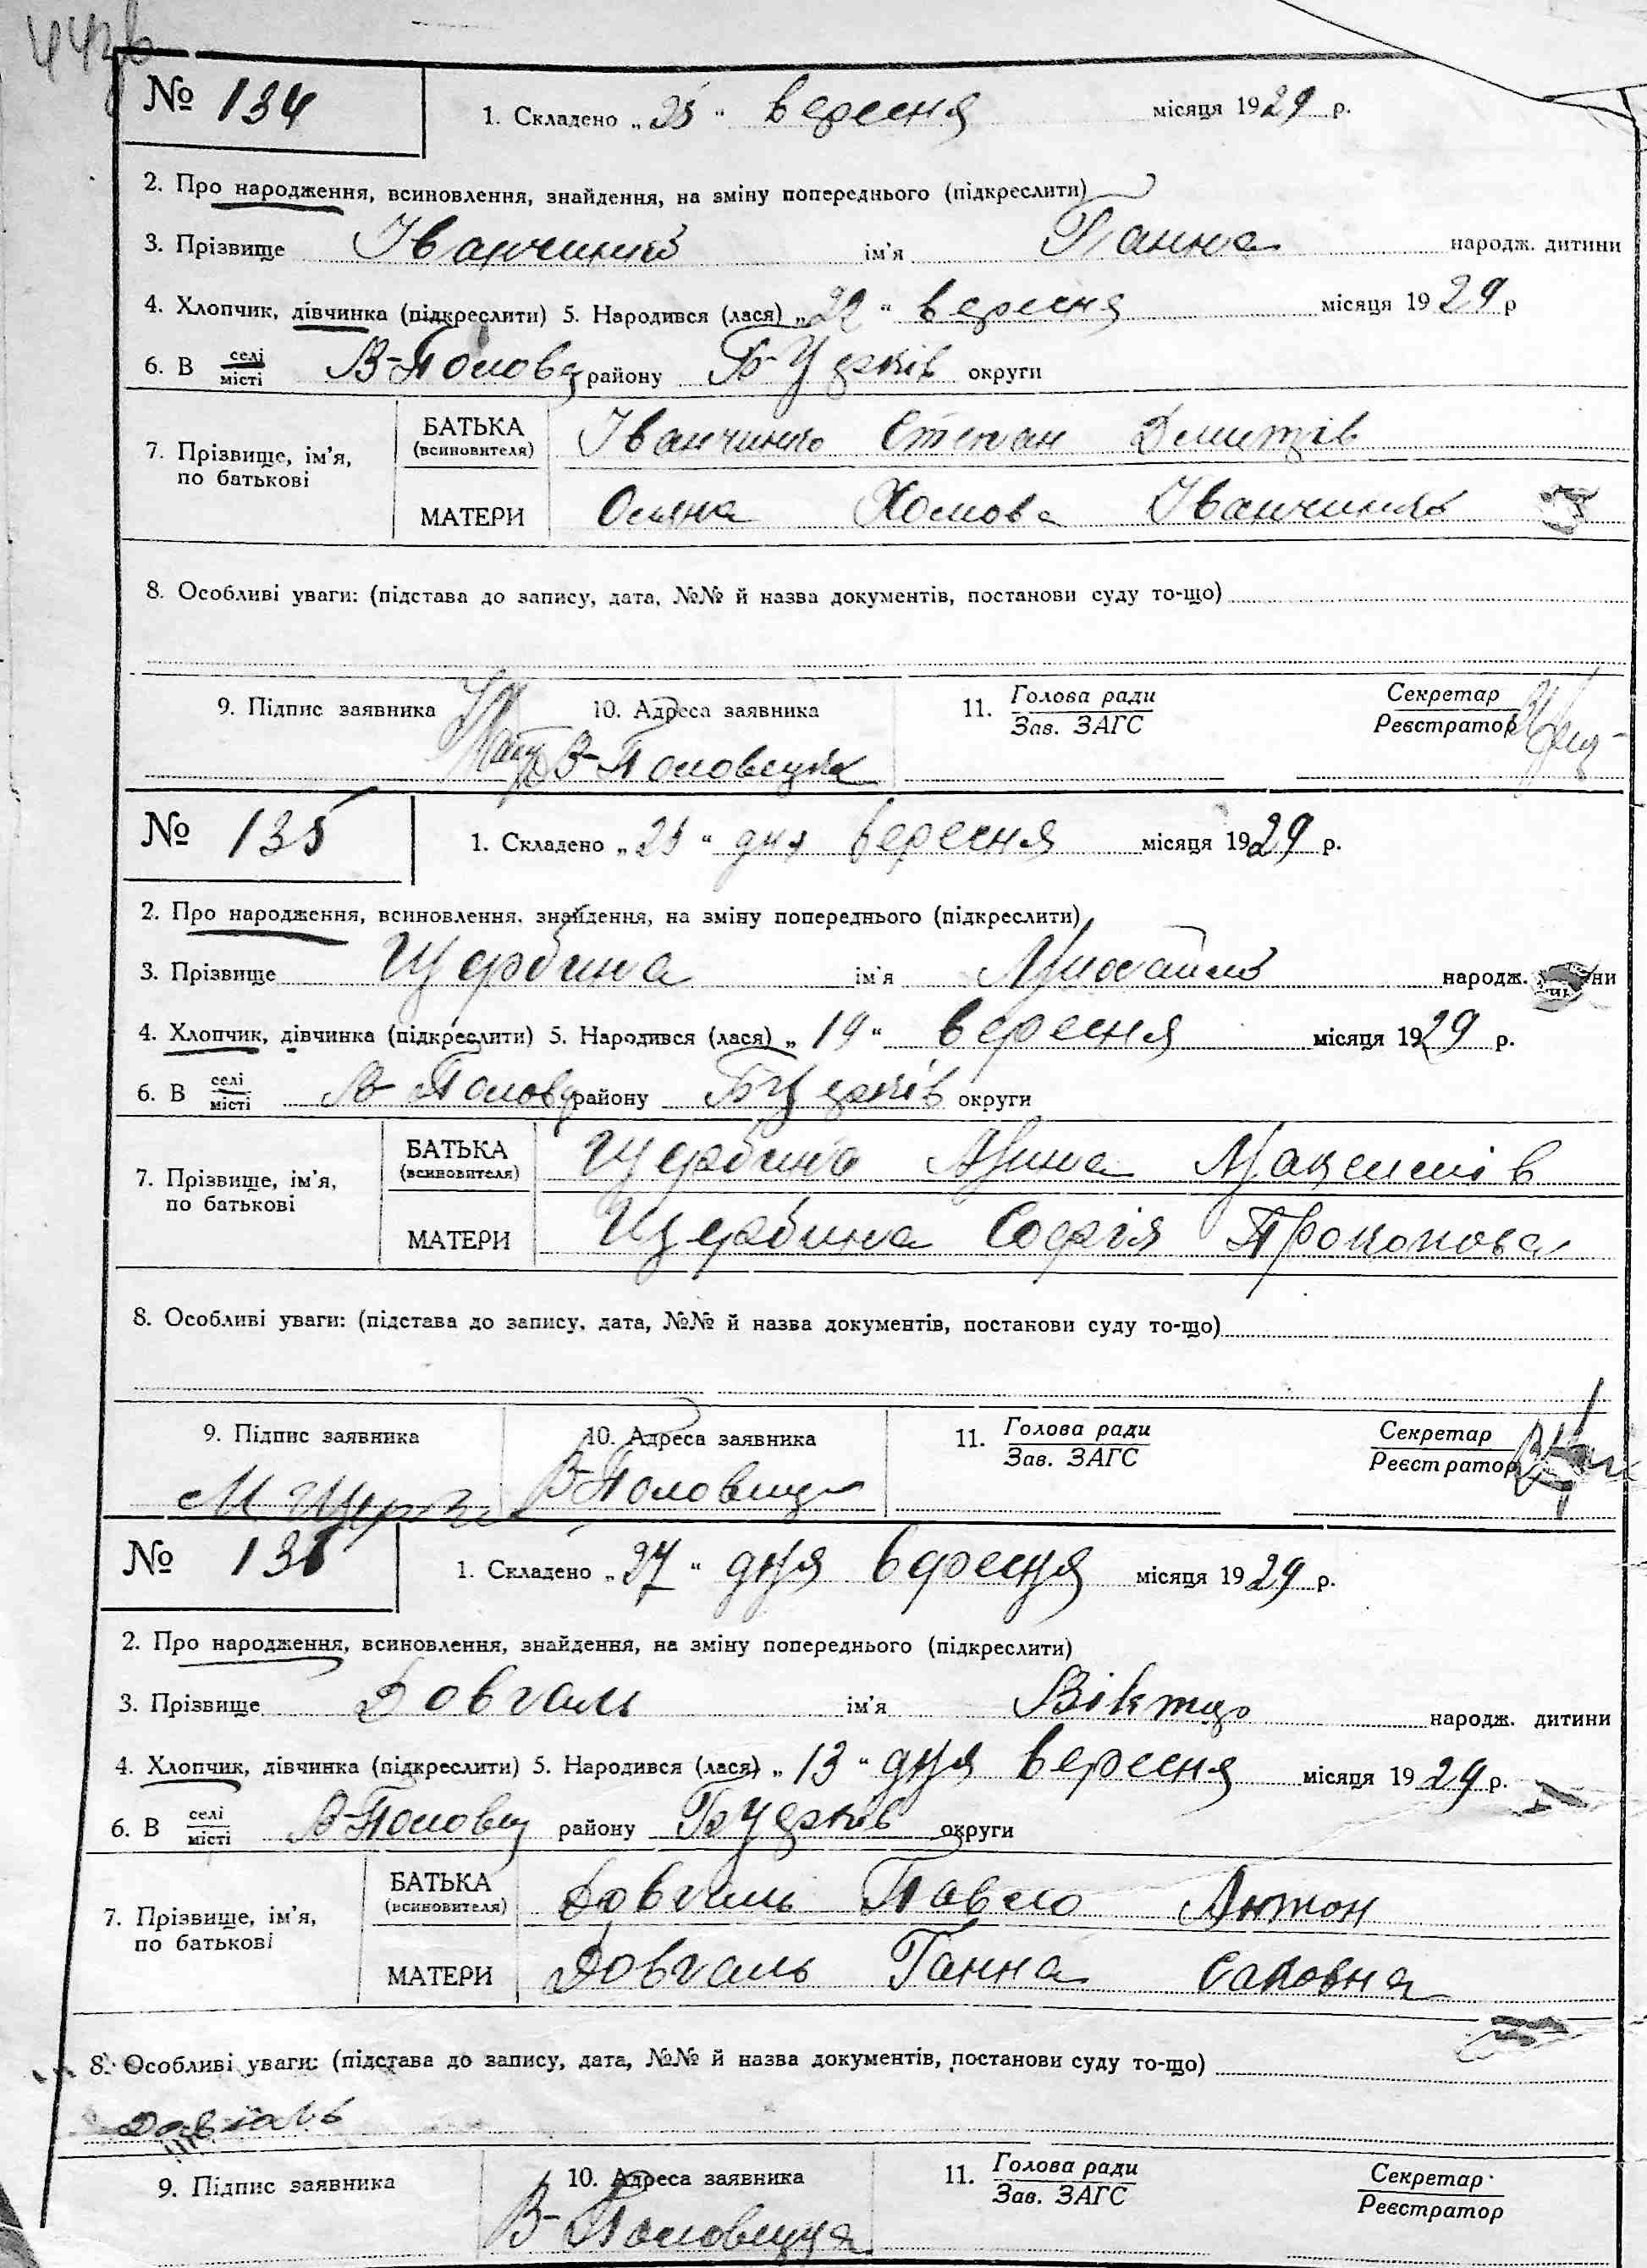 № 134
1. Складено „25“ вересня місяця 1929 р.
2. Про народження, всиновлення, знайдення, на зміну попереднього (підкреслити)
3. Прізвище ім'я Ганна народж. дитини
4. Хлопчик, дівчинка (підкреслити) 5. Народився (лася) „22“ вересня місяця 1929 р
6. В селі
місті району Б-Церків округи
7. Прізвище, ім'я,
по батькові
БАТЬКА
(всиновителя)
Степан Дмитрів
МАТЕРИ
Хомова
8. Особливі уваги: (підстава до запису, дата, №№ й назва документів, постанови суду то-що)
9. Підпис заявника
10. Адреса заявника
11. Голова ради
Зав. ЗАГС
Секретар
Реєстратор
№ 135
1. Складено „25“ дня вересня місяця 1929 р.
2. Про народження, всиновлення, знайдення, на зміну попереднього (підкреслити)
3. Прізвище Щербина ім'я Михайло народж.
4. Хлопчик, дівчинка (підкреслити) 5. Народився (лася) „19“ вересня місяця 1929 р.
6. В селі
місті району Б Церків округи
7. Прізвище, ім'я,
по батькові
БАТЬКА
(всиновителя)
Щербина Максимів
МАТЕРИ
Щербина Софія Прокопова
8. Особливі уваги: (підстава до запису, дата, №№ й назва документів, постанови суду то-що)
9. Підпис заявника
10. Адреса заявника
В-Половецьк
11. Голова ради
Зав. ЗАГС
Секретар
Реєстратор
№ 136
1. Складено „27“ дня вересня місяця 1929 р.
2. Про народження, всиновлення, знайдення, на зміну попереднього (підкреслити)
3. Прізвище Довгаль ім'я Віктор народж. дитини
4. Хлопчик, дівчинка (підкреслити) 5. Народився (лася) „13“ дня вересня місяця 1929 р.
6. В селі
місті району Б Церків округи
7. Прізвище, ім'я,
по батькові
БАТЬКА
(всиновителя)
Довгаль Павло Антон
МАТЕРИ
Довгаль Ганна
8. Особливі уваги: (підстава до запису, дата, №№ й назва документів, постанови суду то-що)
Довгаль
9. Підпис заявника
10. Адреса заявника
11. Голова ради
Зав. ЗАГС
Секретар
Реєстратор